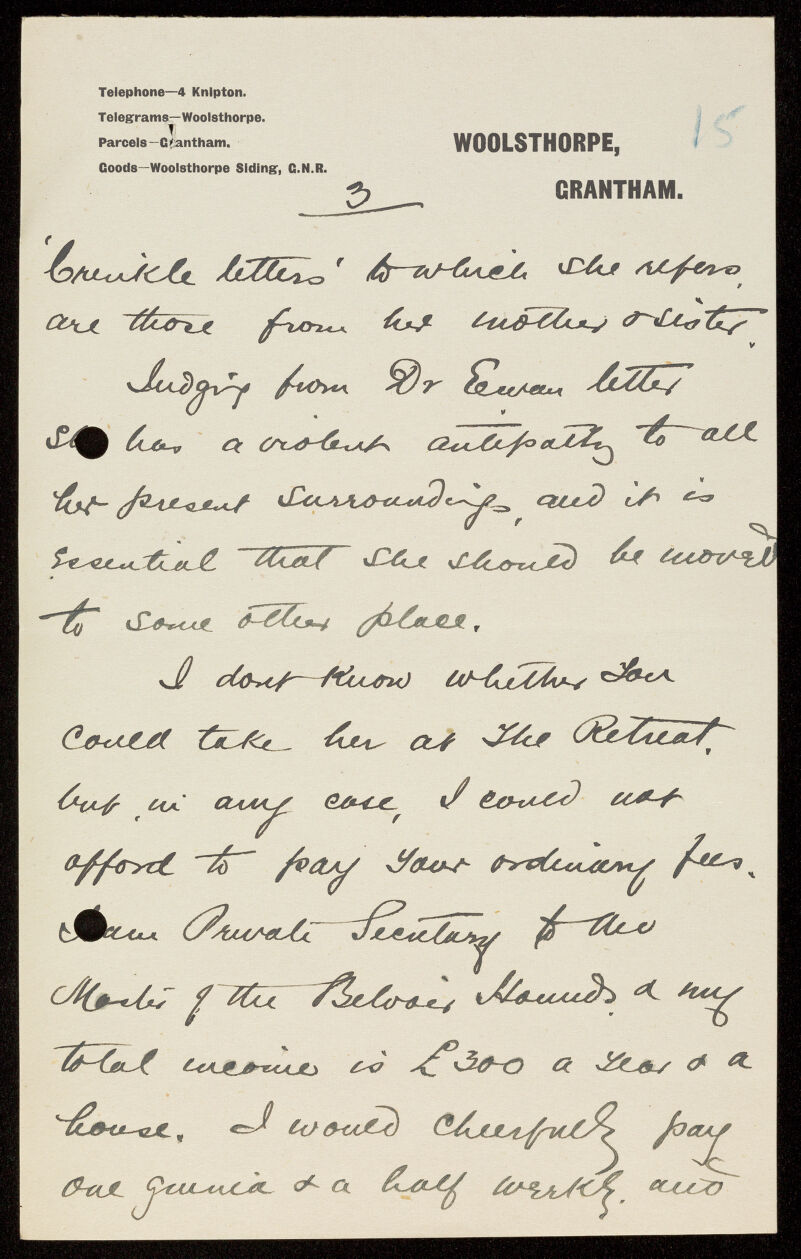 Telephone—4 Knipton.
Telegrams—Woolsthorpe.
Parcels—Grantham.
Goods—Woolsthorpe Siding, G.N.R.
15
WOOLSTHORPE,
GRANTHAM.
3
'Crenkle letters' to which she refers
are those from her mother & sister.
Judging from Dr Eewan letter
she has a violent antipathy to all
her present surroundings, and it is
essential that she should be moved
to some other place.
I dont know whether you
could take her at The Retreat,
but, in any case, I could not
afford to pay your ordinary fees.
I am Private Secretary to the
Master of the Belvoir Hounds & my
total income is £300 a year & a
house. I would cheerfully pay
one guinea & a half weekly, and